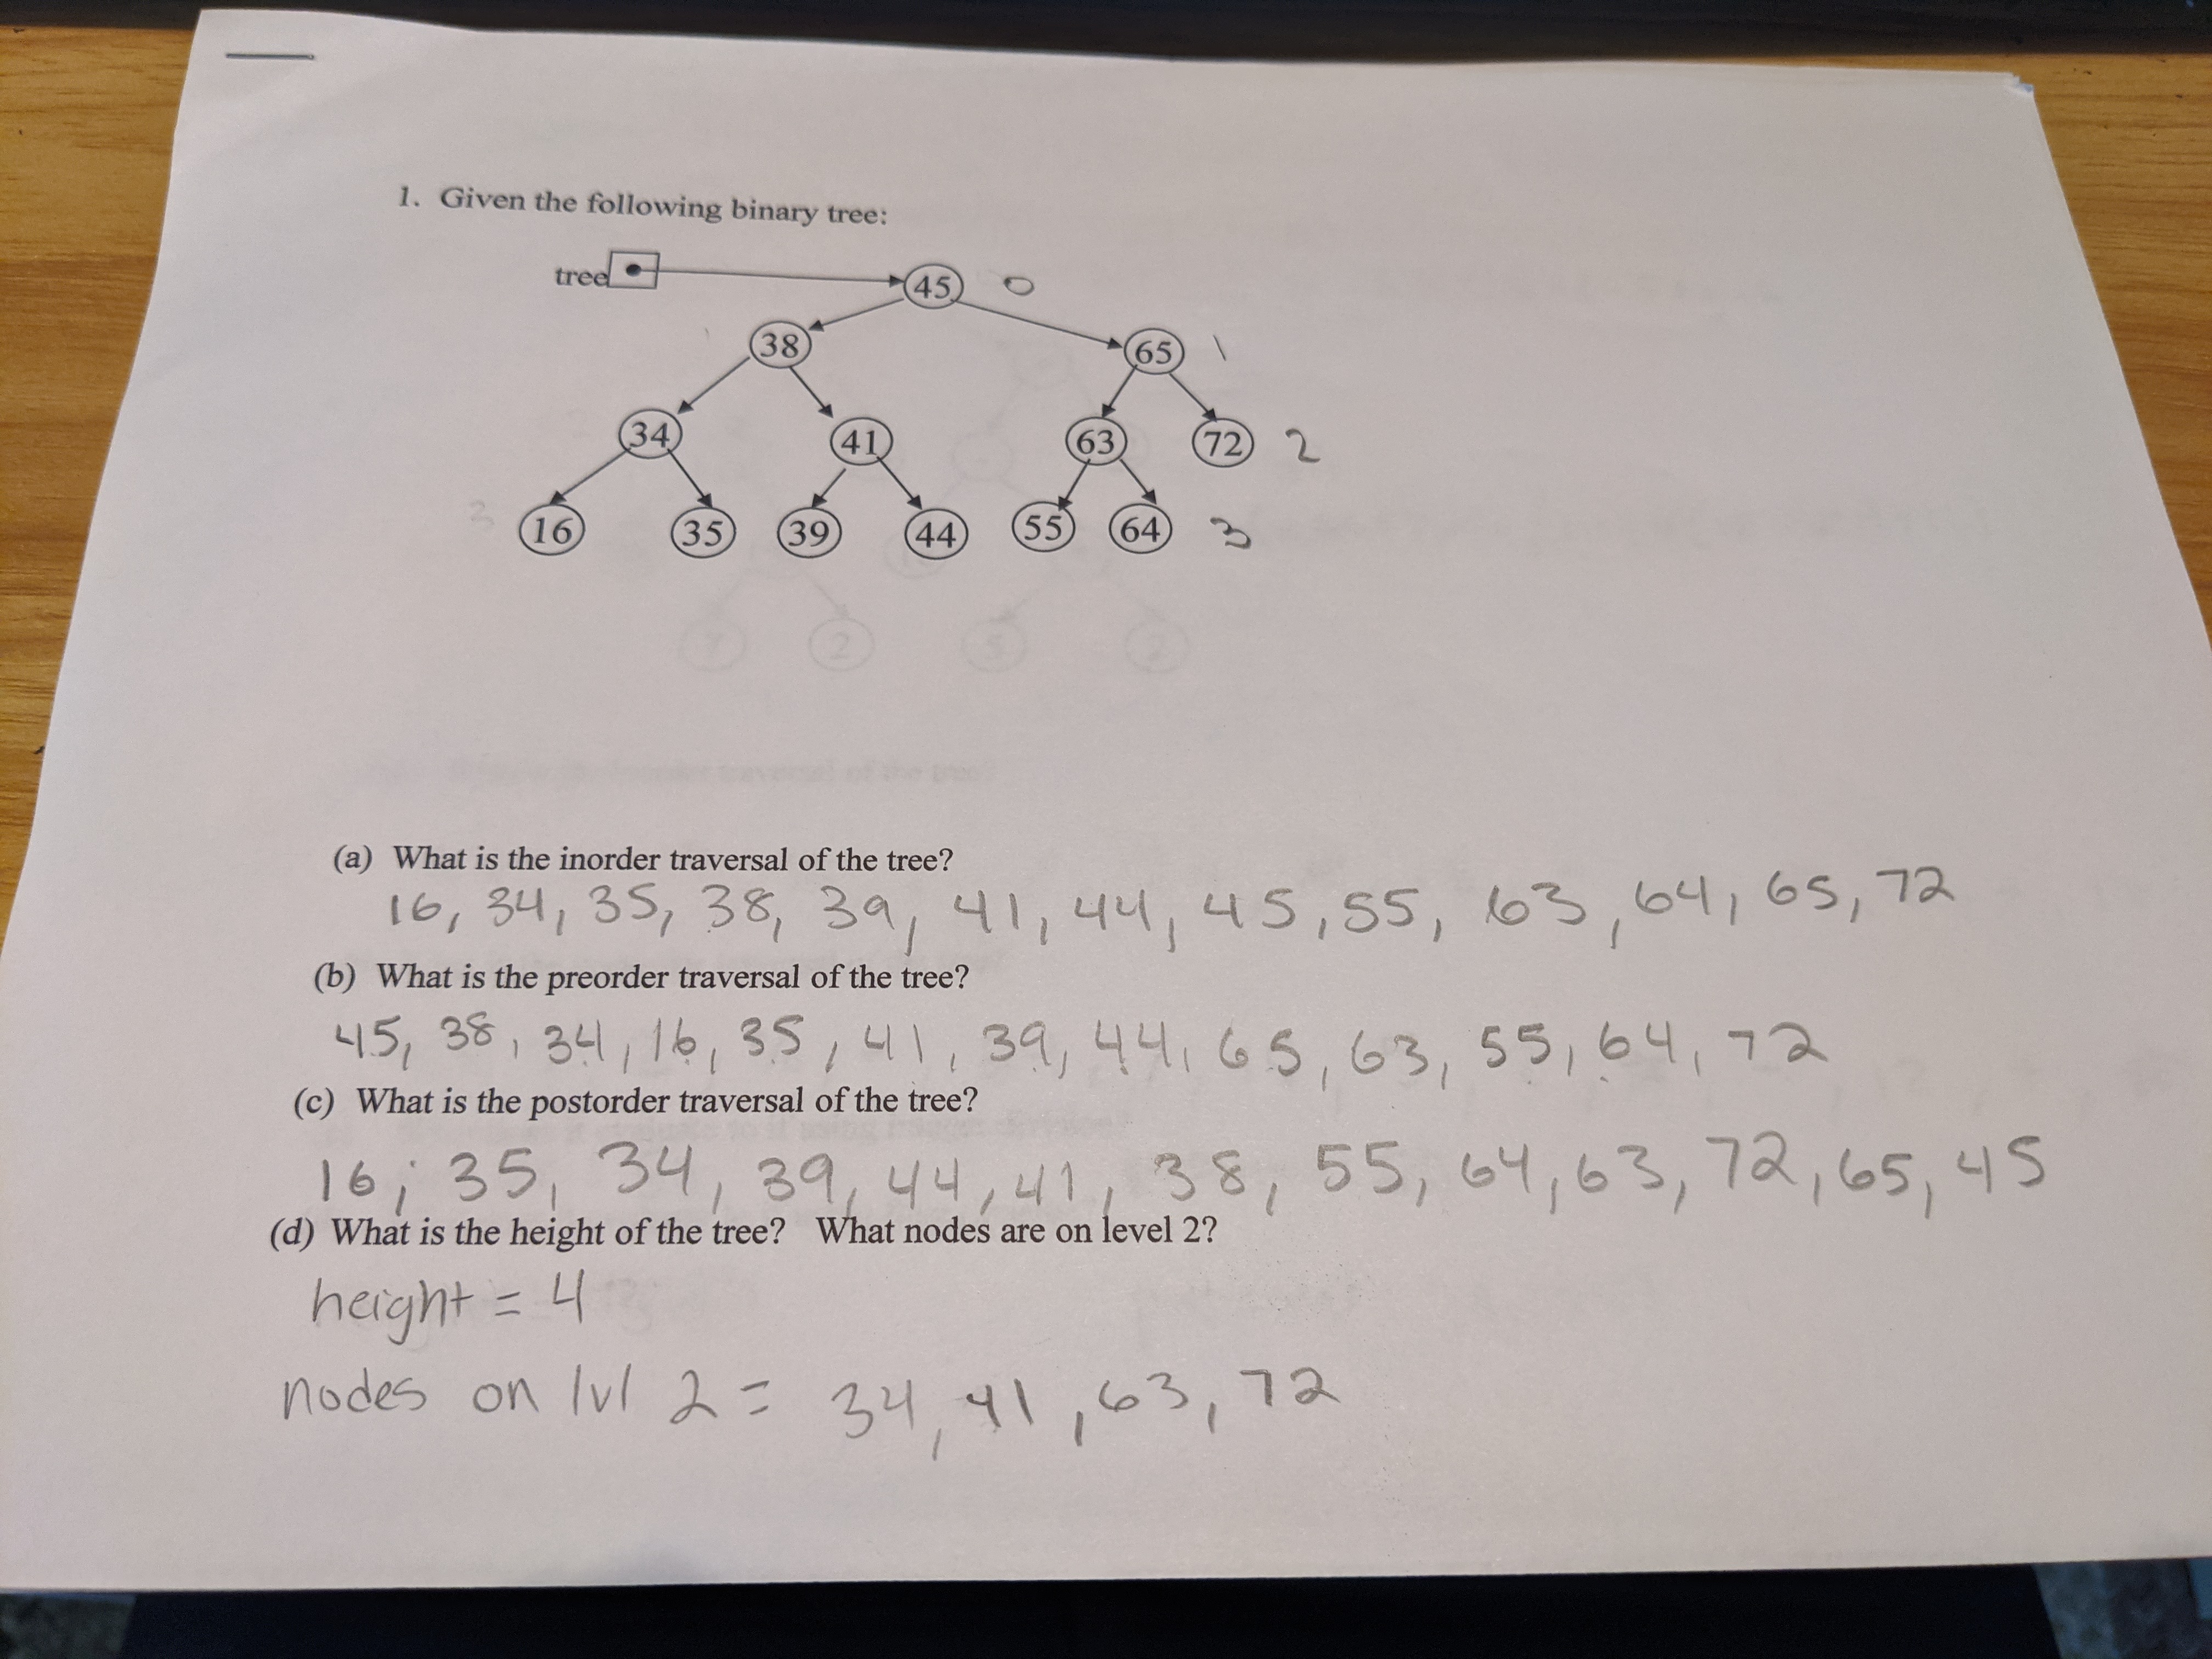 1. Given the following binary tree:
tree
45 0
38 65 1
34 41 63 72 2
3 16 35 39 44 55 64 3
7 2 5 2
(a) What is the inorder traversal of the tree?
16, 34, 35, 38, 39, 41, 44, 45, 55, 63, 64, 65, 72
(b) What is the preorder traversal of the tree?
45, 38, 34, 16, 35, 41, 39, 44, 65, 63, 55, 64, 72
(c) What is the postorder traversal of the tree?
16, 35, 34, 39, 44, 41, 38, 55, 64, 63, 72, 65, 45
(d) What is the height of the tree? What nodes are on level 2?
height = 4
nodes on lvl 2 = 34, 41, 63, 72